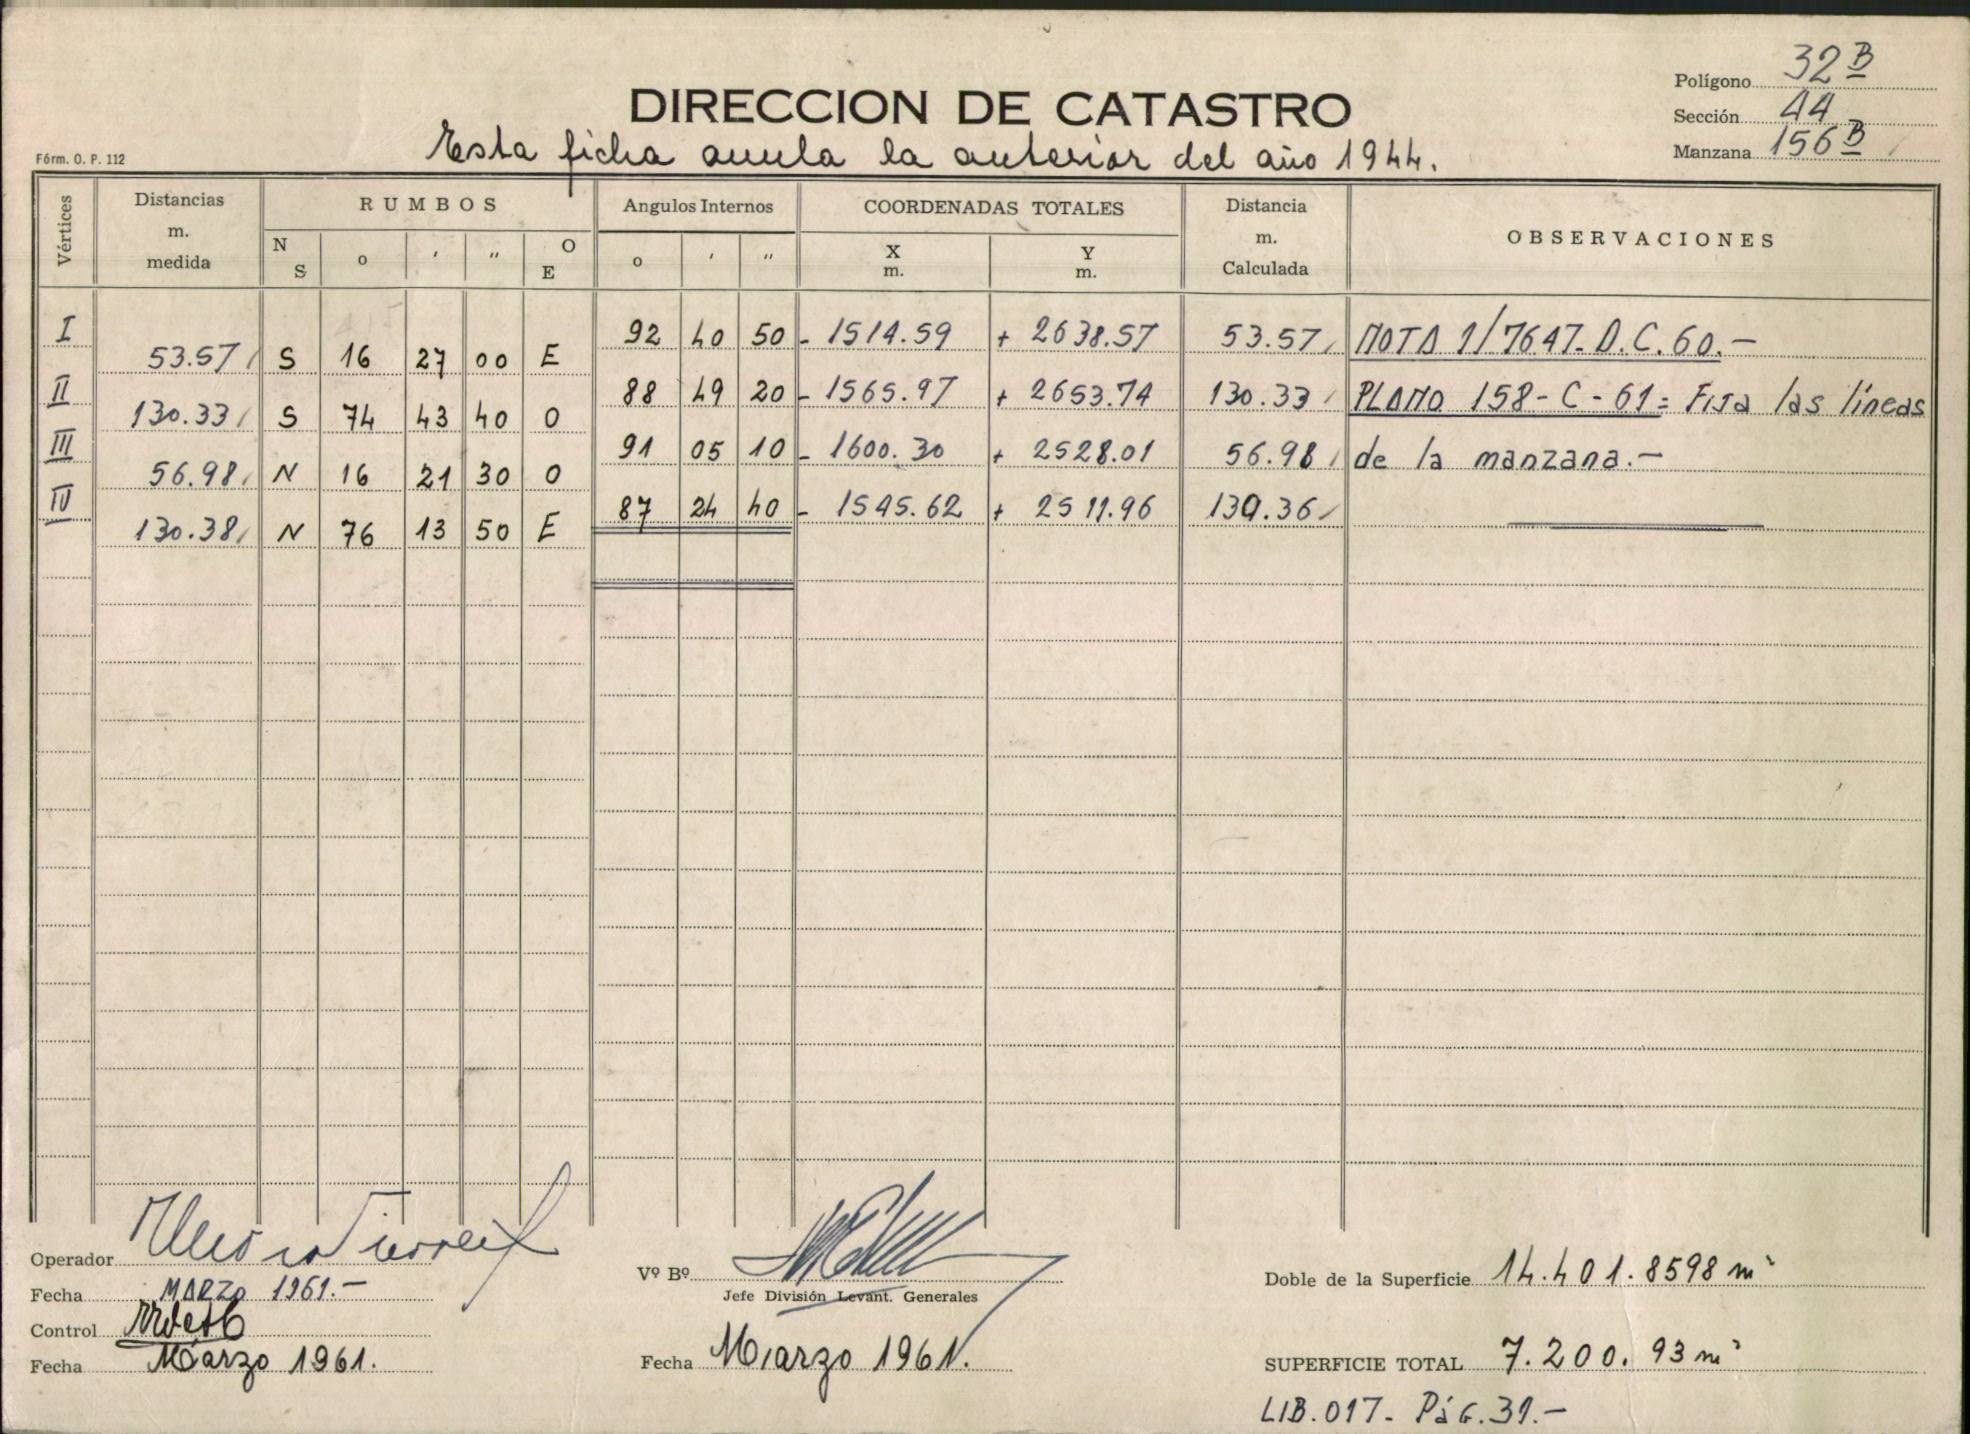 DIRECCION DE CATASTRO
Esta ficha anula la anterior del año 1944.
Polígono 32 B
Sección 44
Manzana 156 B
Fórm. O. P. 112
Vértices
Distancias m. medida
RUMBOS
N S o ′ ″ O E
Angulos Internos
o ′ ″
COORDENADAS TOTALES
X m. Y m.
Distancia m. Calculada
OBSERVACIONES
I 53.57 S 16 27 00 E 92 40 50 - 1514.59 + 2638.57 53.57 NOTA 1/7647. D.C. 60.-
II 130.33 S 74 43 40 O 88 49 20 - 1565.97 + 2653.74 130.33 PLANO 158-C-61= Fija las líneas
III 56.98 N 16 21 30 O 91 05 10 - 1600.30 + 2528.01 56.98 de la manzana.-
IV 130.38 N 76 13 50 E 87 24 40 - 1545.62 + 2511.96 130.36
Operador
Fecha MARZO 1961.-
Control
Fecha Marzo 1961.
Vº Bº
Jefe División Levant. Generales
Fecha Marzo 1961.
Doble de la Superficie 14.401.8598 m²
SUPERFICIE TOTAL 7.200.93 m²
LIB.017- PáG.31.-